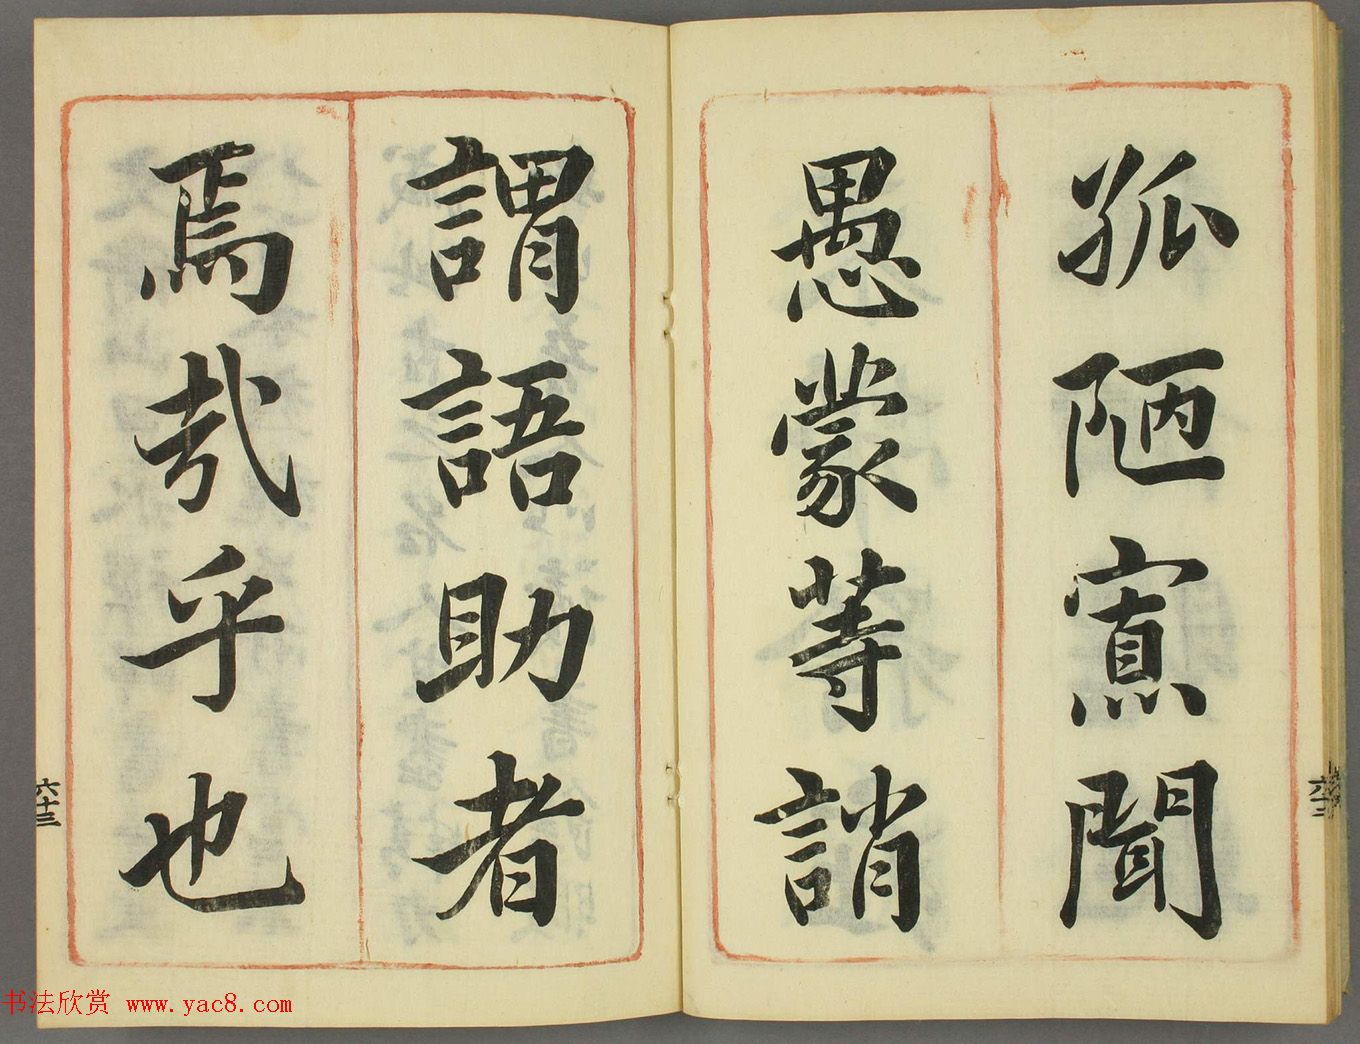 孤陋寡聞
愚蒙等誚
謂語助者
焉哉乎也
六十三
书法欣赏 www.yac8.com